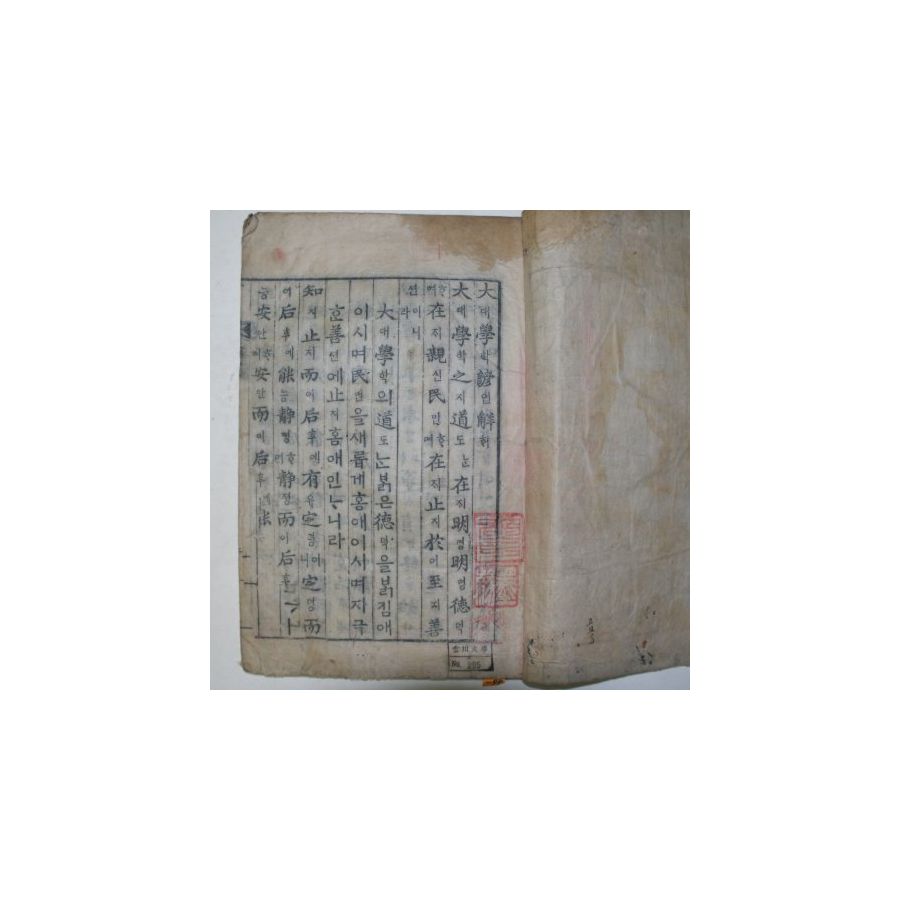 大대學학諺언解ᄒᆡ
大대學학之지道도ᄂᆞᆫ在ᄌᆡ明명明명德덕
ᄒᆞ며在ᄌᆡ親신民민ᄒᆞ며在ᄌᆡ止지於어至지善
션이니라
大대學학의道도ᄂᆞᆫ붉은德덕을붉킴애
이시며民민을새롭게홈애이시며지극
ᄒᆞᆫ善션에止지홈애인ᄂᆞ니라
知지止지而이后후에有유定뎡이니定뎡而
이后후에能능靜졍ᄒᆞ며靜졍而이后후
安안ᄒᆞ며安안而이后후에
No. 295